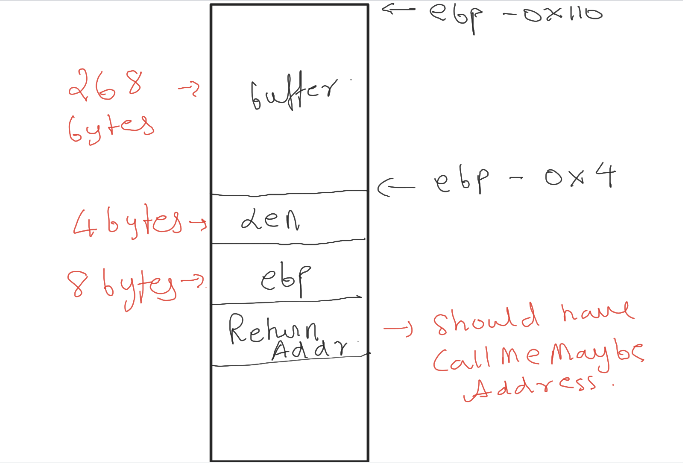 ← ebp - 0x110
268 →
bytes
buffer
← ebp - 0x4
4 bytes →
Len
8 bytes →
ebp
Return
Addr
→ Should have
CallMeMaybe
Address.